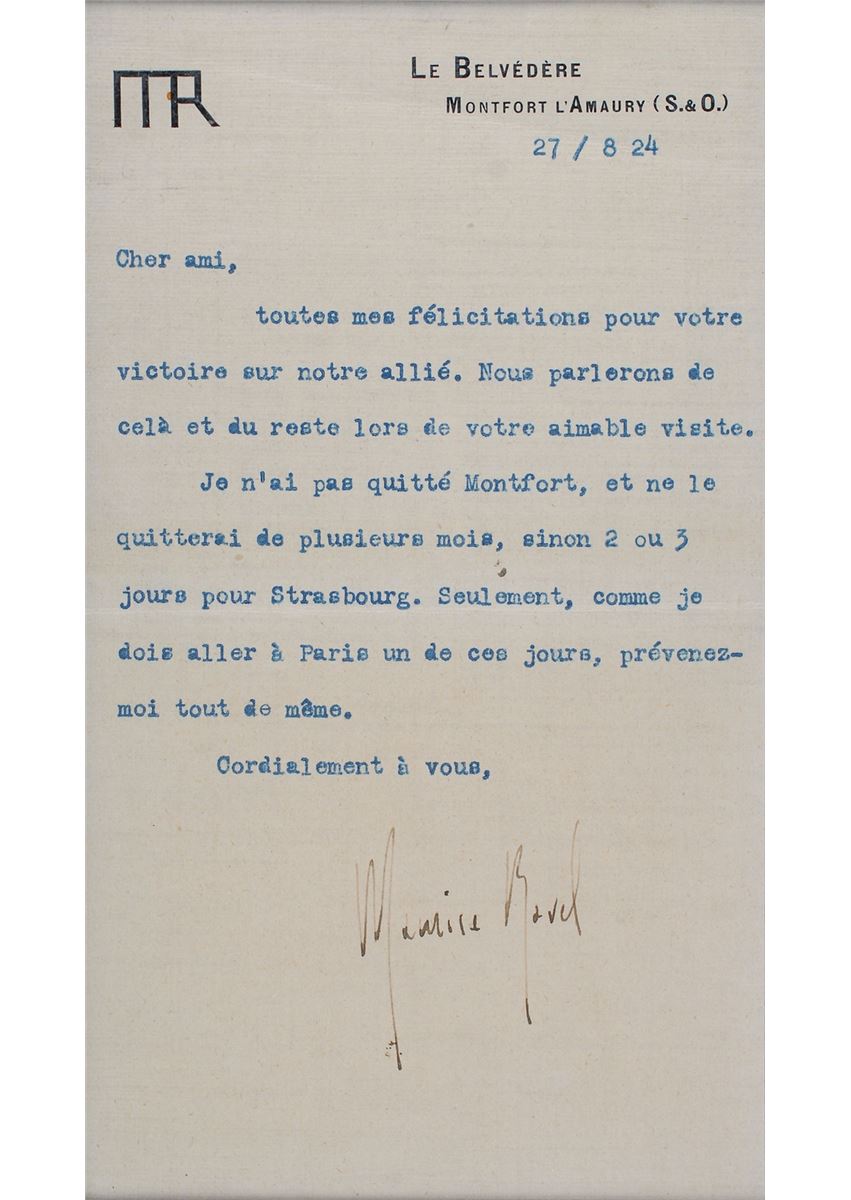 MR
LE BELVÉDÈRE
MONTFORT L'AMAURY (S.&O.)
27 / 8 24
Cher ami,
toutes mes félicitations pour votre
victoire sur notre allié. Nous parlerons de
celà et du reste lors de votre aimable visite.
Je n'ai pas quitté Montfort, et ne le
quitterai de plusieurs mois, sinon 2 ou 3
jours pour Strasbourg. Seulement, comme je
dois aller à Paris un de ces jours, prévenez-
moi tout de même.
Cordialement à vous,
Maurice Ravel